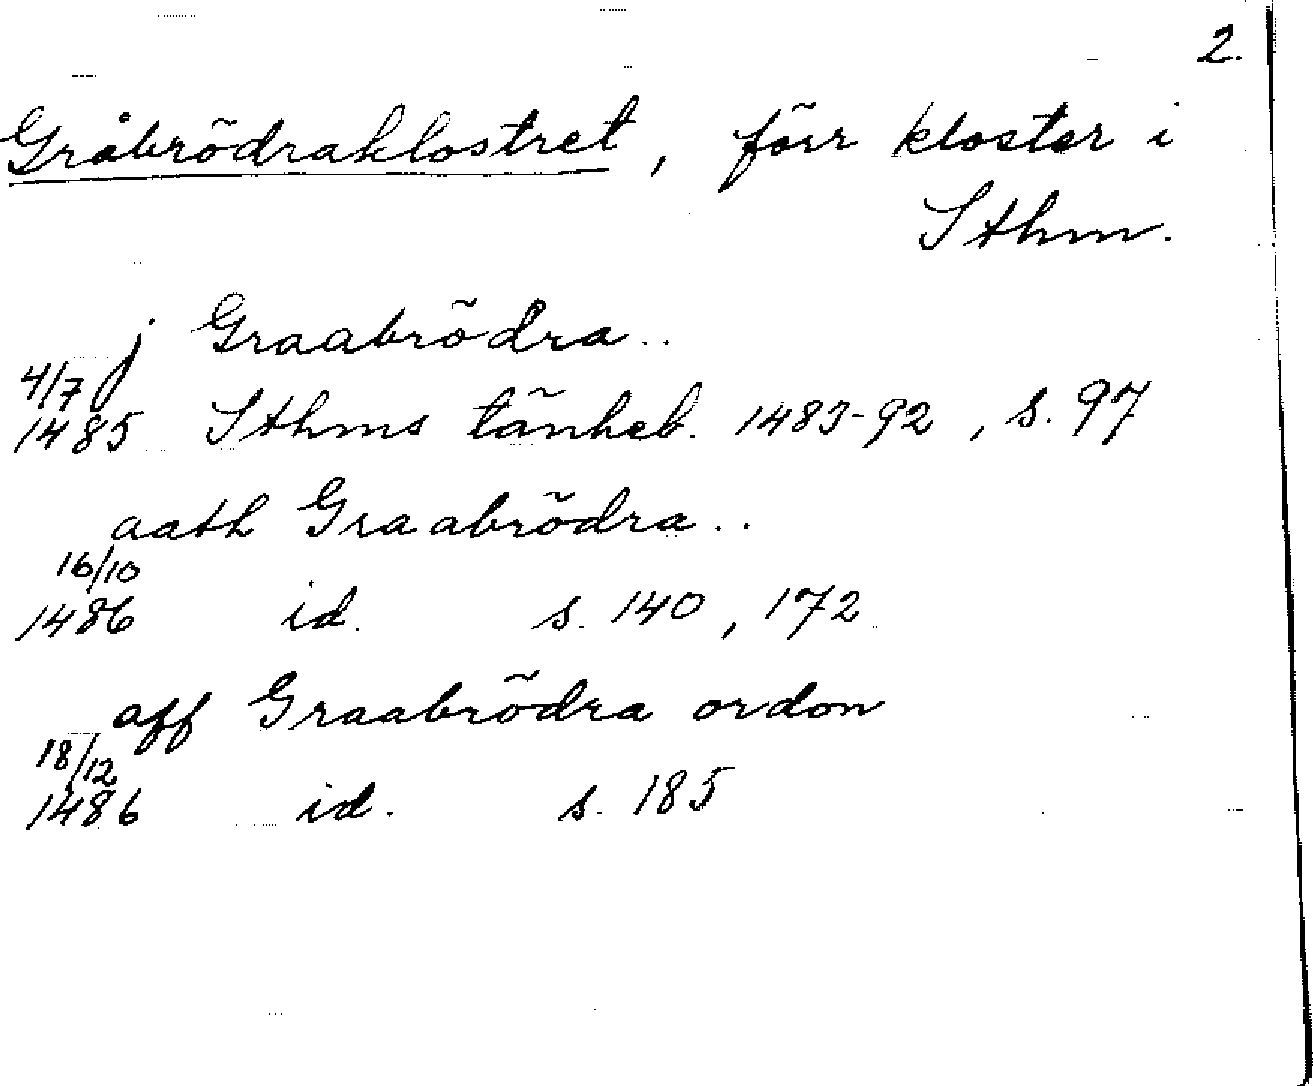 2.
Gråbrödraklostret, förr kloster i
Sthm.
j Graabrödra..
4/7
1485 Sthms tänkeb. 1483-92, s. 97
aath Graabrödra..
16/10
1486 id. s. 140, 172
aff Graabrödra ordon
18/12
1486 id. s. 185